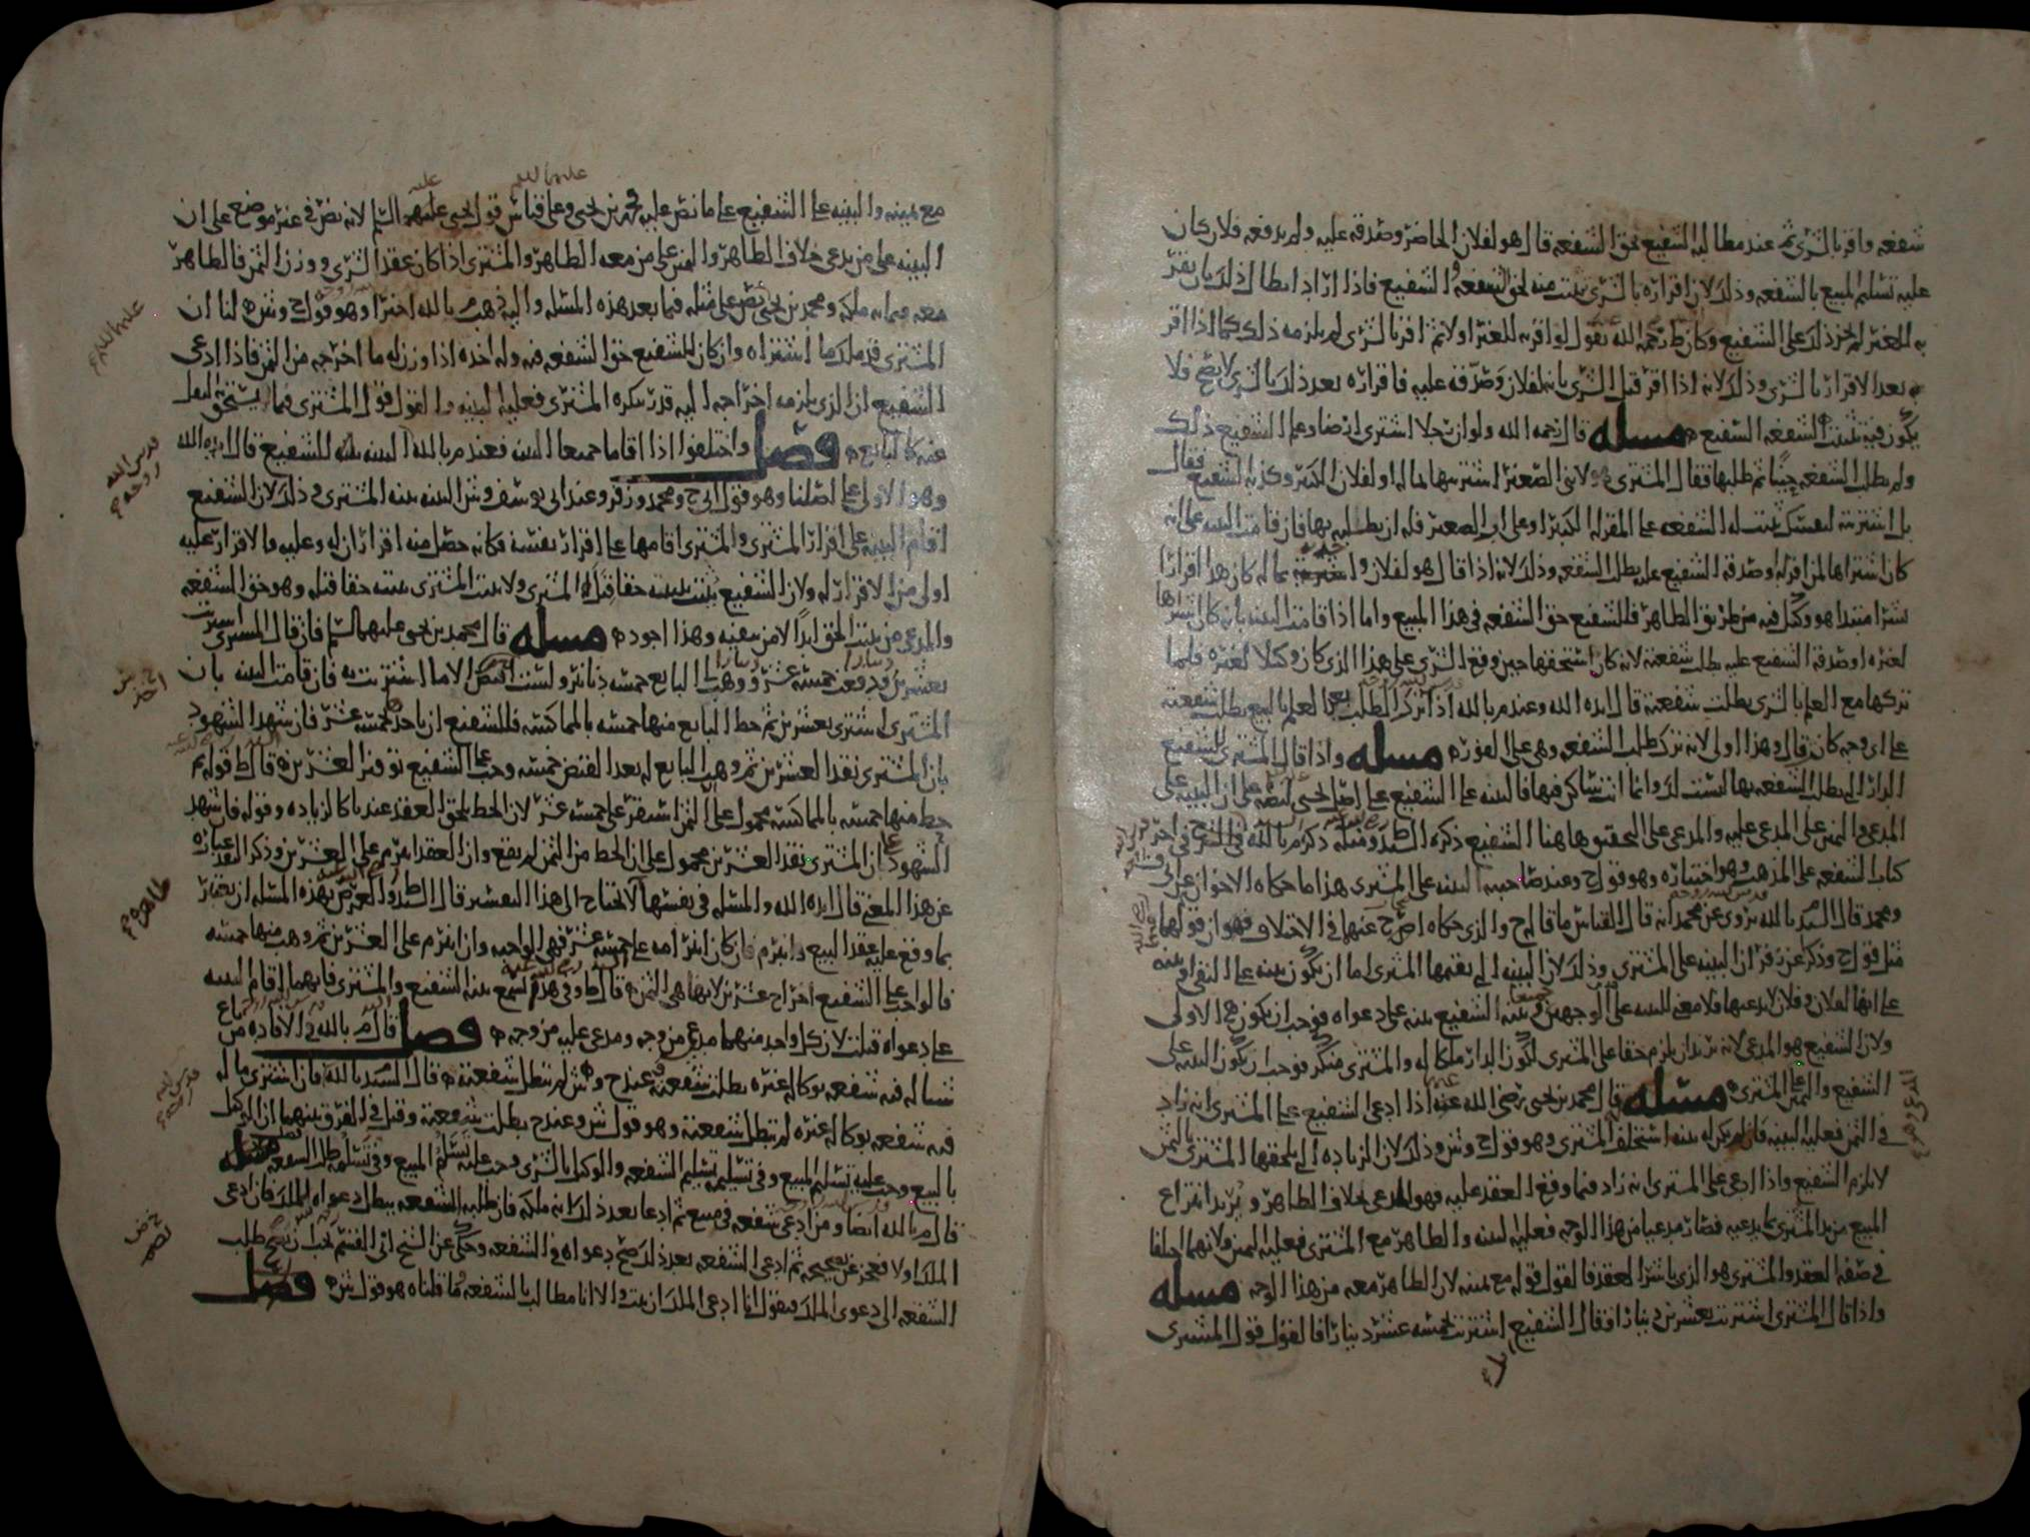 شفعه واقر بالشرى ثم عند مطالبه الشفيع بحق الشفعه قال هو لفلان الحاضر وصدقه عليه ولم يدفعه فلان كان
عليه تسليم المبيع بالشفعه وذلك لان اقراره بالشرى يثبت منه لحق الشفعه والشفيع فاذا اراد ابطال ذلك بان يقر
به للغير لم يجز ذلك على الشفيع وكان ط رحمه الله يقول لو اقر به للغير اولا ثم اقر بالشرى لم يلزمه ذلك كما اذا اقر
به بعد الاقرار بالشرى وذلك لانه اذا اقر قبل الشرى بانه لفلان وصدقه عليه فاقراره بعد ذلك بالشرى لا يصح فلا
يكون فيه تثبيت الشفعه للشفيع مسله قال رحمه الله ولو ان رجلا اشترى ارضا وعلم الشفيع ذلك
ولم يطلب الشفعه حينا ثم طلبها فقال المشترى هو لابنى الصغير اشتريتها بماله او لفلان الكبير وكذبه الشفيع فقال
بل اشتريته لنفسك ثبت له الشفعه على المقر له الكبير او على اب الصغير فله ان يطلبه بها فان قامت البينه على انه
كان شراها لمن اقر له او صدقه الشفيع عليه بطل الشفعه وذلك لانه اذا قال هو لفلان بماله كان هذا اقرارا
شرا مبتدا هو وكيل فيه من طريق الظاهر فللشفيع حق الشفعه فى هذا المبيع واما اذا قامت البينه بانه كان اشتراها
لغيره او صدقه الشفيع عليه بطلت شفعته لانه كان استحقها حين وقع الشرى على هذا الذى كان وكيلا لغيره فلما
تركها مع العلم بالشرى بطلت شفعته قال ايده الله وعند م بالله اذا ترك الطلب بعد العلم بالبيع بطلت شفعته
على اى وجه كان قال وهذا اولى لانه ترك طلب الشفعه وهى على الفور مسله واذا قال المشترى للشفيع
الدار التى تطلب الشفعه بها ليست لك وانما انت ساكن فيها فالبينه على الشفيع على اصل يحيى لنصه على ان البينه على
المدعى واليمين على المدعى عليه والمدعى على التحقيق هاهنا الشفيع ذكره السيد ط ومثله ذكر م بالله فى الشرح فى اخر
كتاب الشفعه على المذهب وهو اختياره وهو قول ح وعند صاحبيه البينه على المشترى هذا ما حكاه الاخوان عن ابى
ومحمد قال السيد م بالله يروى عن محمد انه قال القياس ما قال ح والذى حكاه اصح عنهما فى الاختلاف فهو ان قولهما
مثل قول ح وذكر عن زفر ان البينه على المشترى وذلك لان البينه التى يقيمها المشترى اما ان يكون بينه على النفى او بينه
على انها لفلان وفلان لا يدعيها فلا معنى للبينه على الوجهين جميعا وبينه الشفيع بينه على دعواه فوجب ان يكون هى الاولى
ولان الشفيع هو المدعى لانه يريد ان يلزم حقا على المشترى لكون الدار ملكا له والمشترى منكر فوجب ان يكون البينه على
الشفيع واليمين على المشترى مسله قال محمد بن يحيى رضى الله عنه اذا ادعى الشفيع على المشترى انه زاد
فى الثمن فعليه البينه فان لم يكن له بينه استحلف المشترى وهو قول ح وش وذلك لان الزياده التى يلحقها المشترى بالثمن
لا يلزم الشفيع واذا ادعى على المشترى انه زاد فيما وقع العقد عليه فهو المدعى بخلاف الظاهر ويريد انتزاع
المبيع من يد المشترى بما يدعيه فصار مدعيا من هذا الوجه فعليه البينه والظاهر مع المشترى فعليه اليمين ولانهما اختلفا
فى صفه العقد والمشترى هو الذى باشر العقد فالقول قوله مع يمينه لان الظاهر معه من هذا الوجه مسله
واذا قال المشترى اشتريت بعشرين دينارا وقال الشفيع اشتريت بخمسه عشر دينارا فالقول قول المشترى
مع يمينه والبينه على الشفيع على ما نص عليه محمد بن يحيى وعلى قياس قول يحيى عليهم السلم لانه نص فى غير موضع على ان
البينه على من يدعى خلاف الظاهر واليمين على من معه الظاهر والمشترى اذا كان عقد الشرى ووزن الثمن فالظاهر
معه فيما انه ملكه ومحمد بن يحيى نص على مثله فيما بعد هذه المسله واليه ذهب م بالله اخيرا وهو قول ح وش لنا ان
المشترى قد ملك ما اشتراه وان كان للشفيع حق الشفعه فيه وله اخذه اذا وزن له ما اخرجه من الثمن فاذا ادعى
الشفيع ان الذى يلزمه اخراجه اليه قدر ينكره المشترى فعليه البينه والقول قول المشترى فيما يستحق النقل
عنه كالبائع فصل واختلفوا اذا اقاما جميعا البينه فعند م بالله البينه بينه للشفيع قال ايده الله
وهو الاولى على اصلنا وهو قول ابى ح ومحمد وزفر وعند ابى يوسف وش البينه بينه المشترى وذلك لان الشفيع
اقام البينه على اقرار المشترى والمشترى اقامها على اقرار نفسه فكانه حصل منه اقراران له وعليه والاقرار عليه
اولى من الاقرار له ولان الشفيع يثبت ببينته حقا قبل المشترى ولا يثبت المشترى ببينته حقا قبله وهو حق الشفعه
والمدعى من يثبت الحق ابدا لا من ينفيه وهذا اجود مسله قال محمد بن يحيى عليهما السلم فان قال المشترى اشتريت
بعشرين ودفعت خمسه عشر ووهب البايع خمسه دنانير ولست اقبض الا ما اشتريت به فان قامت البينه بان
المشترى اشترى بعشرين ثم حط البايع منها خمسه بالمماكسه فللشفيع ان ياخذ بخمسه عشر فان شهد الشهود
بان المشترى نقد العشرين ثم وهب البايع له بعد القبض خمسه وجب على الشفيع توفير العشرين قال ط قوله ثم
حط منها خمسه بالمماكسه محمول على ان الثمن استقر على خمسه عشر لان الحط يلحق العقد عندنا كالزياده وقوله فان شهد
الشهود على ان المشترى نقد العشرين محمول على ان الحط من الثمن لم يقع وان العقد انبرم على العشرين وذكر النقد عباره
عن هذا المعنى قال ايده الله والمسله فى نفسها لا تحتاج الى هذا التفسير قال السيد ط والغرض بهذه المسله ان يعتبر
بما وقع عليه عقد البيع وانبرم فان كان انبرامه على خمسه عشر فهى الواجبه وان انبرم على العشرين ثم وهب منها خمسه
فالواجب على الشفيع اخراج عشرين لانها هى الثمن قال ط وفى هذا تسمع بينه الشفيع والمشترى فايهما اقام البينه
على دعواه قبلت لان كل واحد منهما مدعى من وجه ومدعى عليه من وجه فصل قال م بالله فى الافاده من باع
شيا له فيه شفعه بوكاله غيره بطلت شفعته عند ح و ش لم تبطل شفعته قال السيد م بالله فان اشترى ما له
فيه شفعه بوكاله غيره لم تبطل شفعته وهو قول ش وعند ح بطلت شفعته وقيل فى الفرق بينهما ان الوكيل
بالبيع وجب عليه تسليم المبيع وفى تسليمه تسليم الشفعه والوكيل بالشرى وجب عليه تسلم المبيع وفى تسلمه طلب الشفعه مسله
قال م بالله ايضا ومن ادعى شفعه فى مبيع ثم ادعا بعد ذلك انه ملكه فان طلبه الشفعه يبطل دعواه الملك فان ادعى
الملك اولا فعجز عن تصحيحه ثم ادعى الشفعه بعد ذلك صح دعواه فى الشفعه وحكى عن الشيخ ابى القسم يجب ان يصح طلب
الشفعه الى دعوى الملك فيقول انا ادعى الملك ان ثبت والا انا مطالب بالشفعه وما قلناه هو قول ش فصل